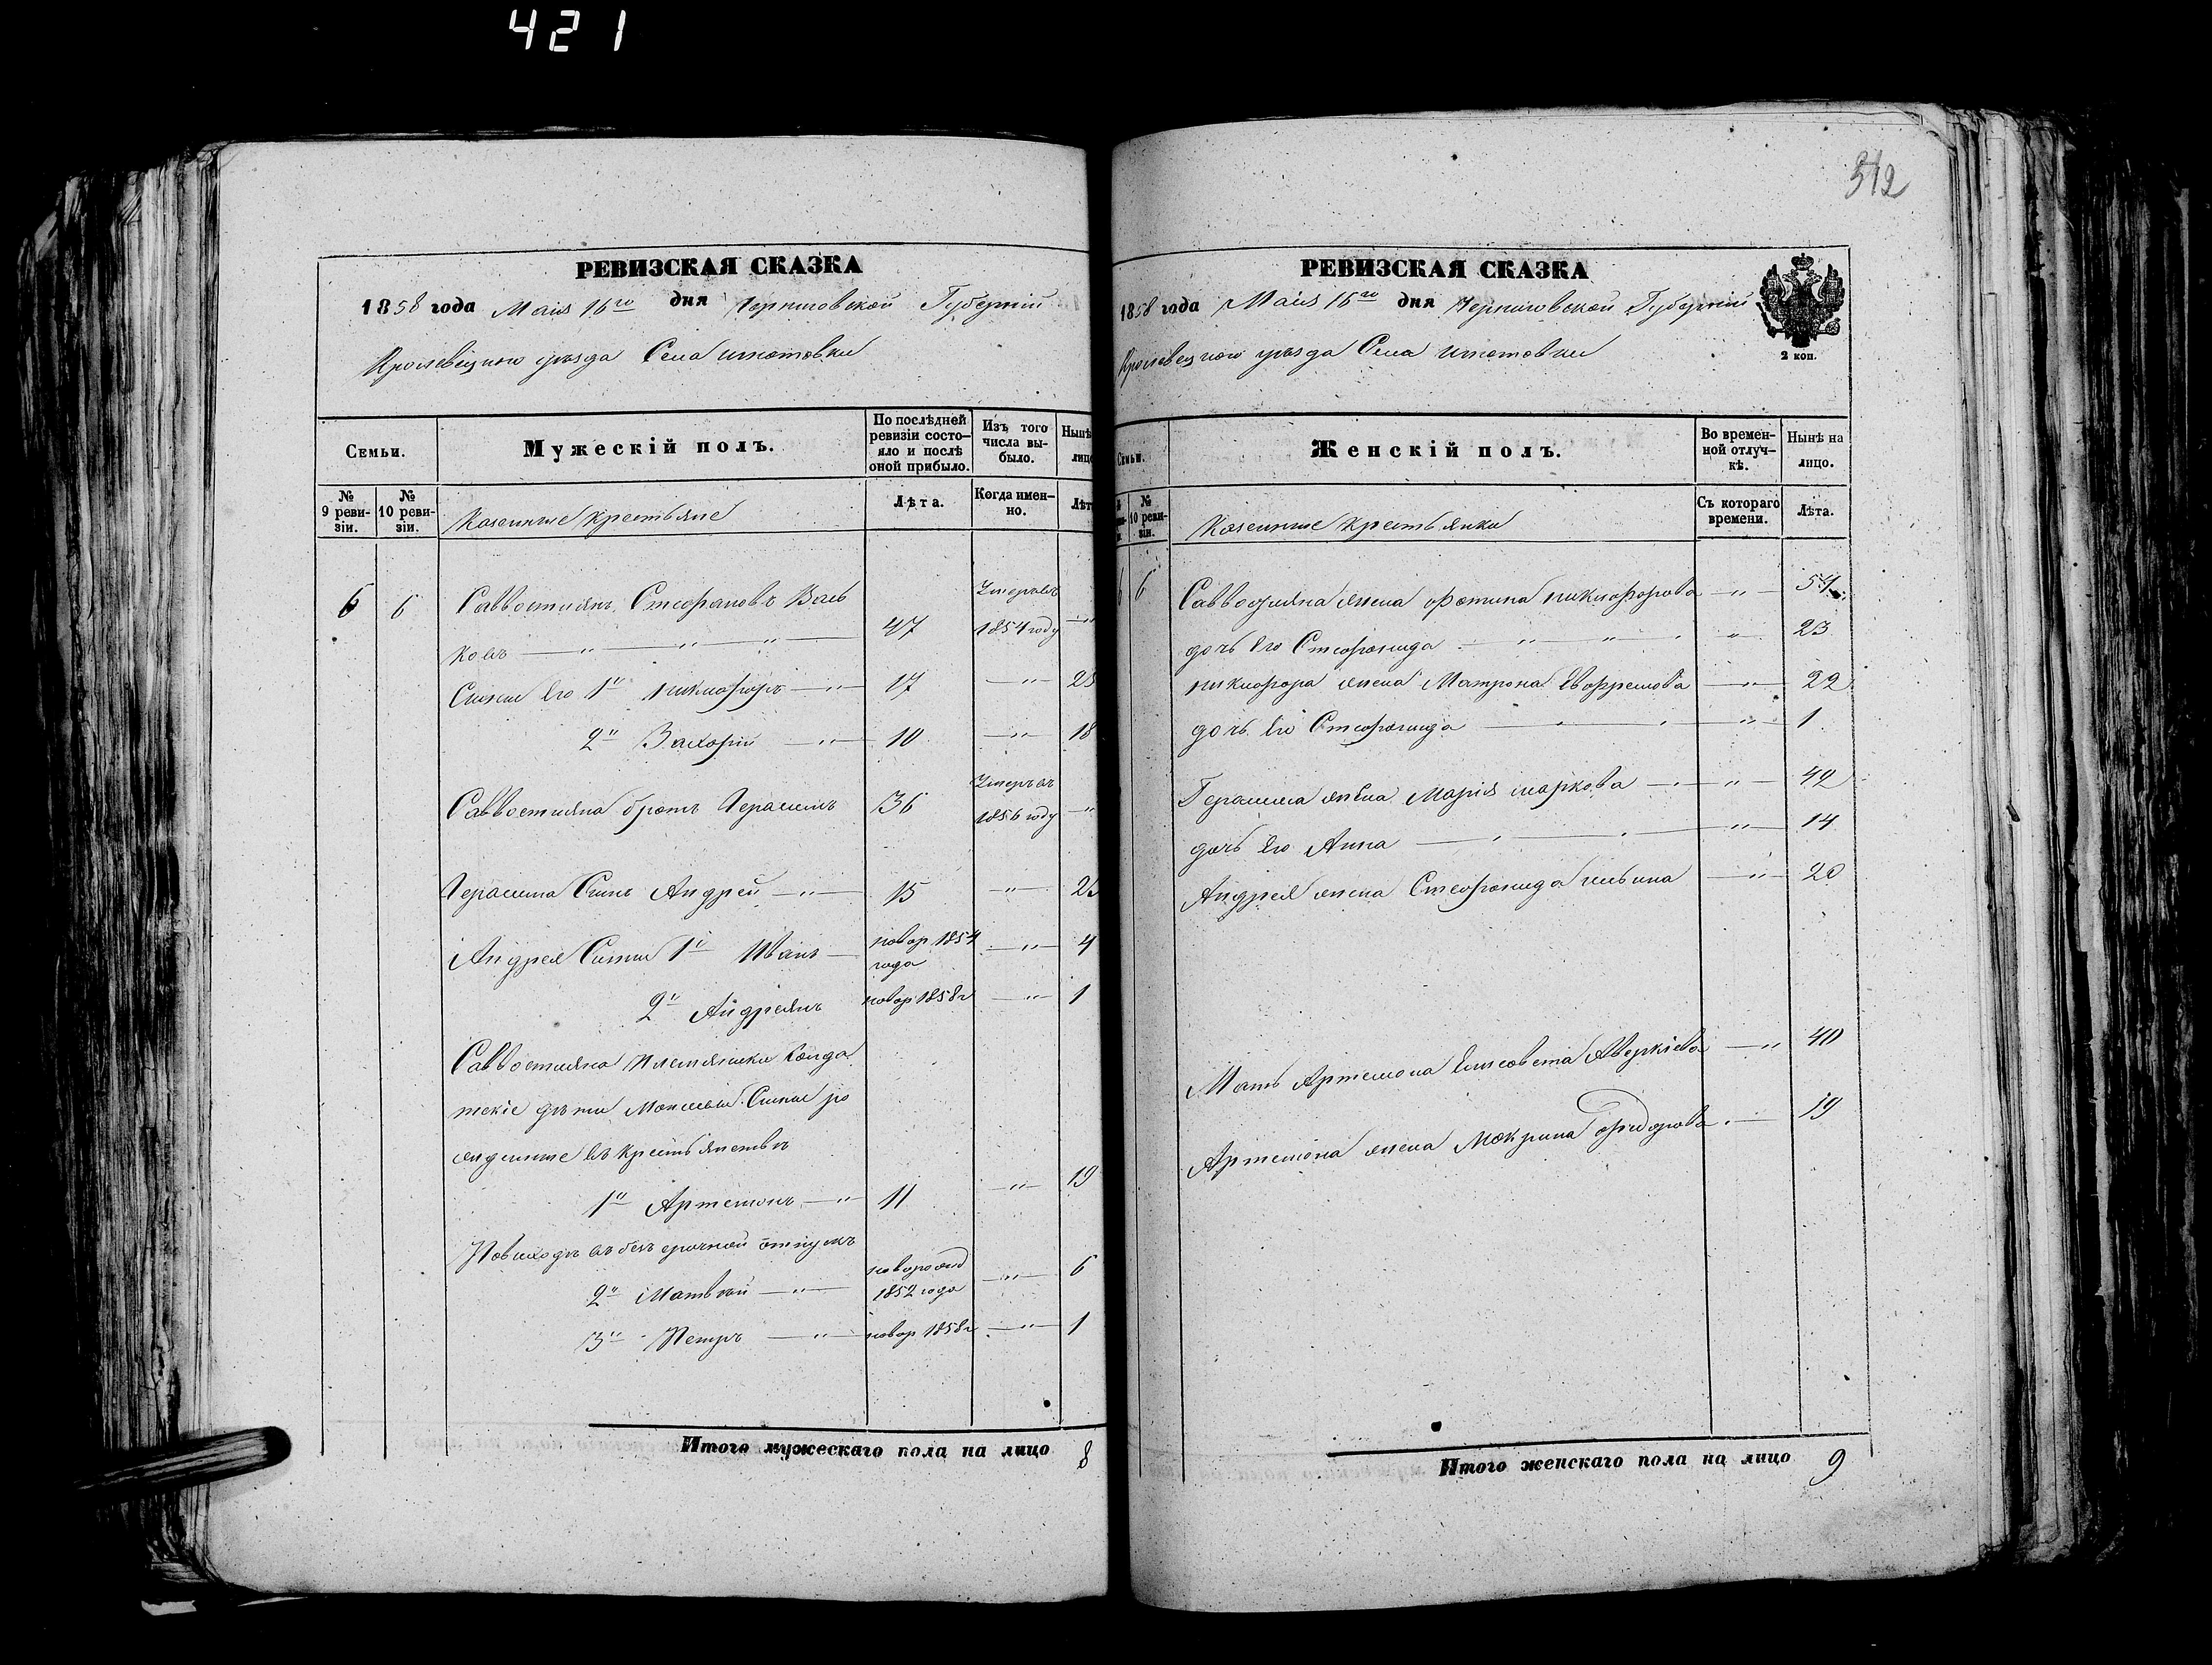 421
РЕВИЗСКАЯ СКАЗКА
1858 года Маія 16го дня Черниговской Губерніи
Кролевецкого уѣзда Села
Семьи.
Мужескій полъ.
По послѣдней ревизіи состояло и послѣ оной прибыло.
Изъ того числа выбыло.
Нынѣ лицо
№ 9 ревизіи.
№ 10 ревизіи.
Казенные крестьяне
Лѣта.
Когда именно.
Лѣт
6 6 Савостиянъ Стефановъ Вась Умеръ въ
ковъ —"— —"— 47 1854 году —"
Сыны Его 1й Никифоръ —"— 17 —"—
2й Захорій —"— 10 —"— 18
Умеръ въ
Савостияна братъ Герасимъ 36 1856 году —"
Герасима Сынъ Андрей —"— 15 —"—
Андрея Сыны 1й Иванъ — новор 1854 года —"— 4
2й Андреянъ новор 1858 г —"— 1
Савостияна Племяники Солда
тскіе дѣти Сыны ро
жденные въ крестьянствѣ
1й Артемонъ —"— 11 —"— 19
въ безсрочной отпускъ
2й Матвѣй —"— новорожд 1852 года —"— 6
3й Петръ —"— новор 1858 г —"— 1
Итого мужескаго пола на лицо 8
РЕВИЗСКАЯ СКАЗКА
1858 года Маія 16го дня Черниговской Губерніи
2 коп.
Кролевецкого уѣзда Села
Семьи.
Женскій полъ.
Во временной отлучкѣ.
Нынѣ на лицо.
№ 10 ревизіи.
Казенные крестьянки
Съ котораго времени.
Лѣта.
6 6 Савостияна жена Фотина Никифорова —"— 54
дочь Его Стефанида —"— " 23
Никифора жена Матрона Евфремова —"— 22
дочь Его Стефанида —"— 1
Герасима жена Марія Маркова —"— 42
дочь Его Анна —"— 14
Андрея жена Стефанида Ильина —"— 20
Мать Артемона Елисовета Аверкіева —"— 40
Артемона жена Мокрина Фидорова — 19
Итого женскаго пола на лицо 9